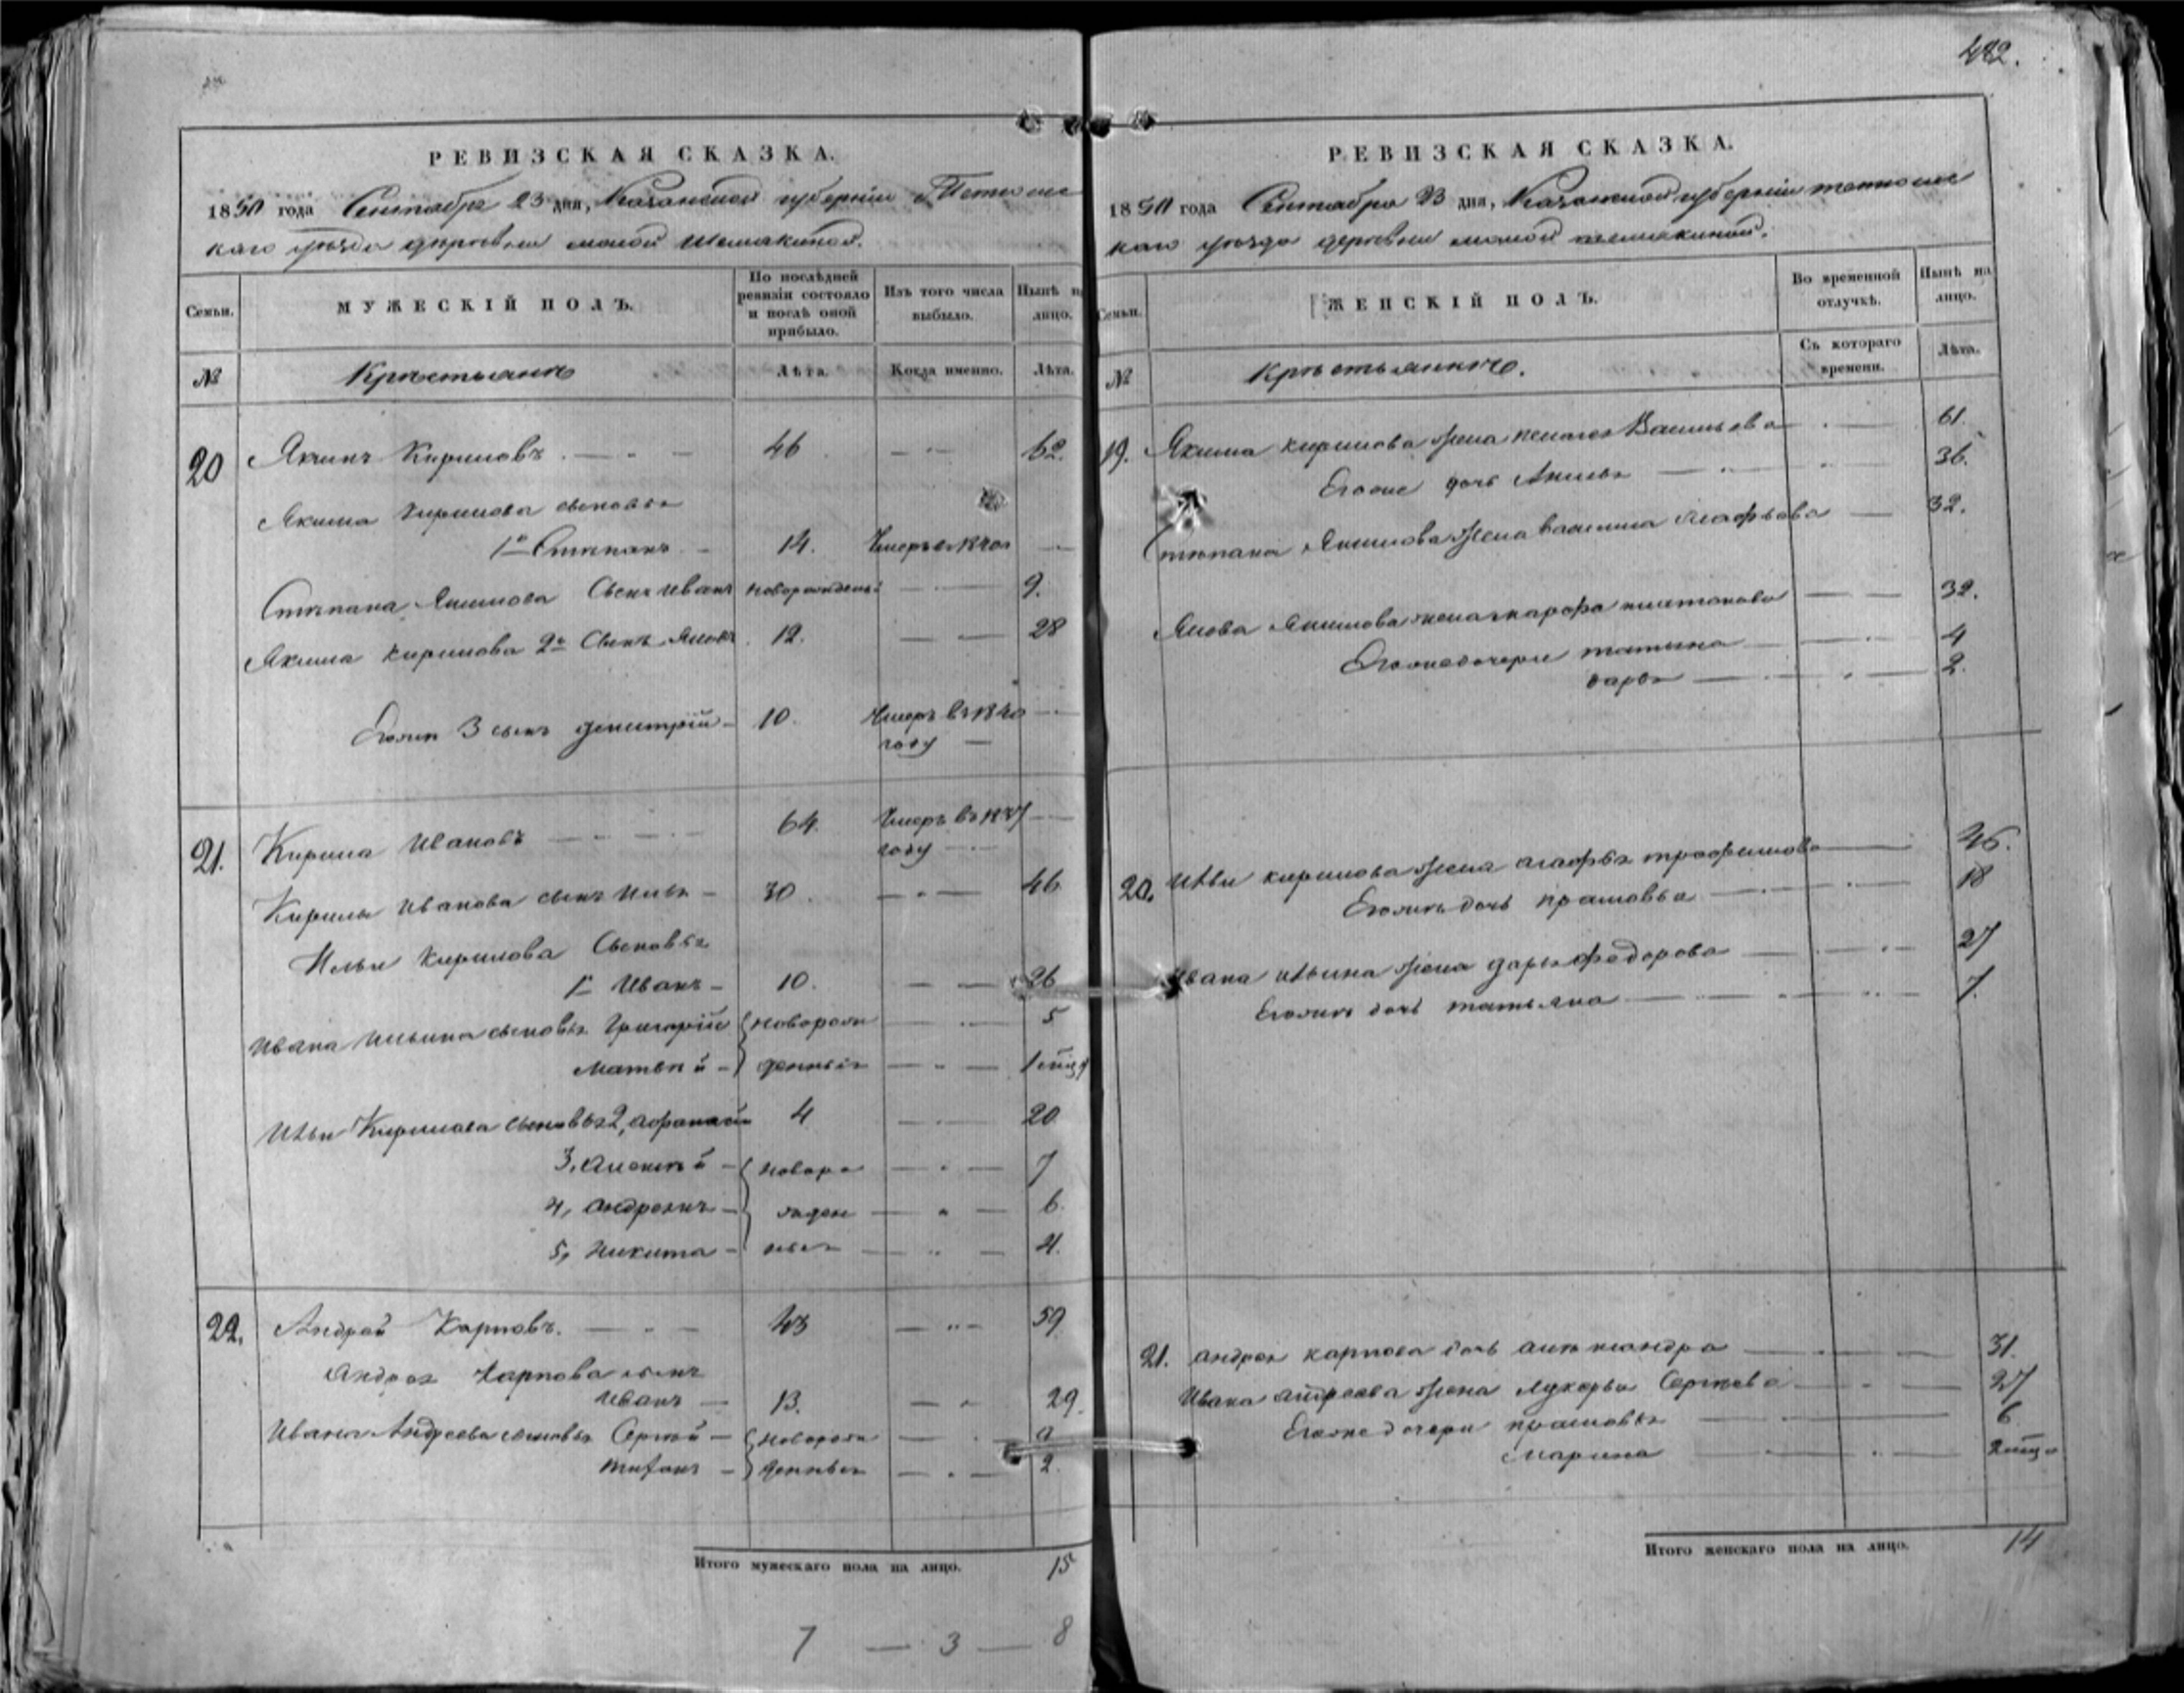 РЕВИЗСКАЯ СКАЗКА.
1850 года Сентября 23 дня, Казанской губерніи Тетюшс
каго уѣзда деревни малой Шемякиной.
Семьи.
МУЖЕСКІЙ ПОЛЪ.
По послѣдней ревизіи состояло и послѣ оной прибыло.
Изъ того числа выбыло.
Нынѣ на лицо.
№
Крестьянъ
Лѣта.
Когда именно.
Лѣта.
20 Якимъ Кириловъ. 46 62.
Якима Кирилова сыновья
1й Степанъ 14. Умеръ в 1840
Степана Якимова Сынъ Иванъ новорожденъ 9.
Якима Кирилова 2й Сынъ Яковъ 12. 28
Егоже 3 сынъ Дмитрій 10. Умеръ въ 1840
году
21. Кирила Ивановъ 64. Умеръ въ 1837
году
Кирилы Иванова сынъ Илья 30. 46
Ильи Кирилова Сыновья
1й Иванъ 10. 26
Ивана Ильина сыновья Григорій новорож 5
Матвей денныя 1
Ильи Кирилова сыновья 2, Афанасій 4 20
3, Алексѣй новоро 7
4, Андреянъ жден 6
5, Никита ныя 4.
22. Андрей Карповъ. 43 59
Андрея Карпова сынъ
Иванъ 13. 29.
Ивана Андреева сыновья Сергѣй новорож
денныя 2.
Итого мужескаго пола на лицо. 15
7 — 3 — 8
РЕВИЗСКАЯ СКАЗКА.
1850 года Сентября 23 дня, Казанской губерніи тетюшс
каго уѣзда деревни малой шемякиной.
Семьи.
ЖЕНСКІЙ ПОЛЪ.
Во временной отлучкѣ.
Нынѣ на лицо.
№
Крестьянкъ.
Съ котораго времени.
Лѣта.
19. Якима кирилова жена пелагея Васильева 61.
Егоже дочь 36.
Степана Якимова жена василиса 32.
Якова Якимова жена 32.
Егоже дочери татьяна 4
дарья 2.
20. Ильи кирилова жена агафья трофимова 46.
Егоже дочь прасковья 18
Ивана ильина жена дарья федорова 27
Егоже дочь татьяна 7.
21. андрея карпова дочь александра 31.
Ивана андреева жена лукерья Сергеева 27
Егоже дочери прасковья 6.
Марина 2
Итого женскаго пола на лицо. 14